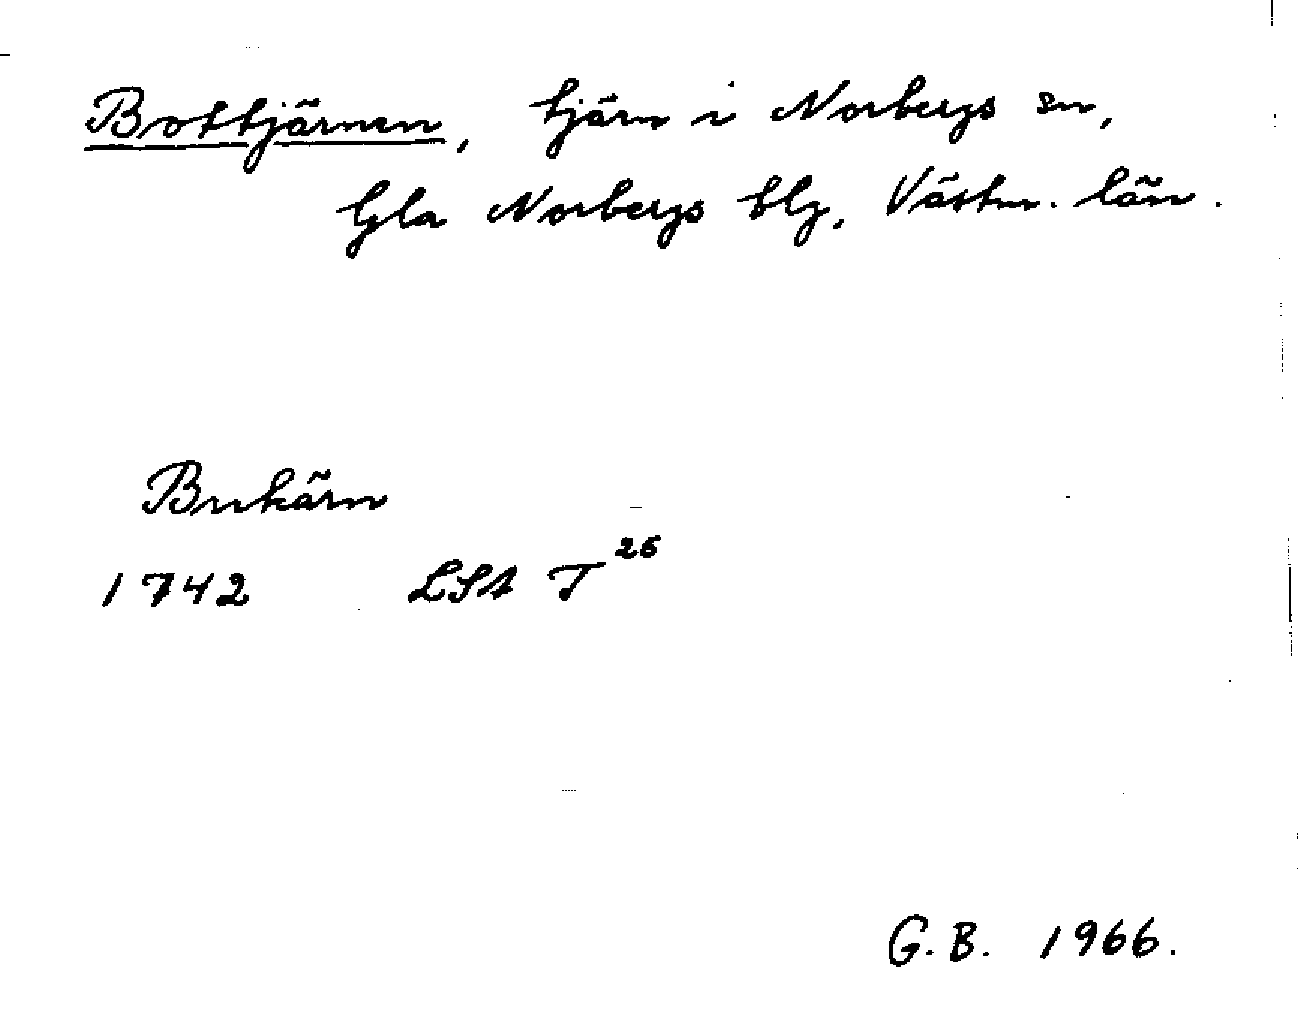 Bottjärnen, tjärn i Norbergs sn,
Gla Norbergs blg, Västm. län.
Bukärn
1742 LSA T²⁶
G.B. 1966.